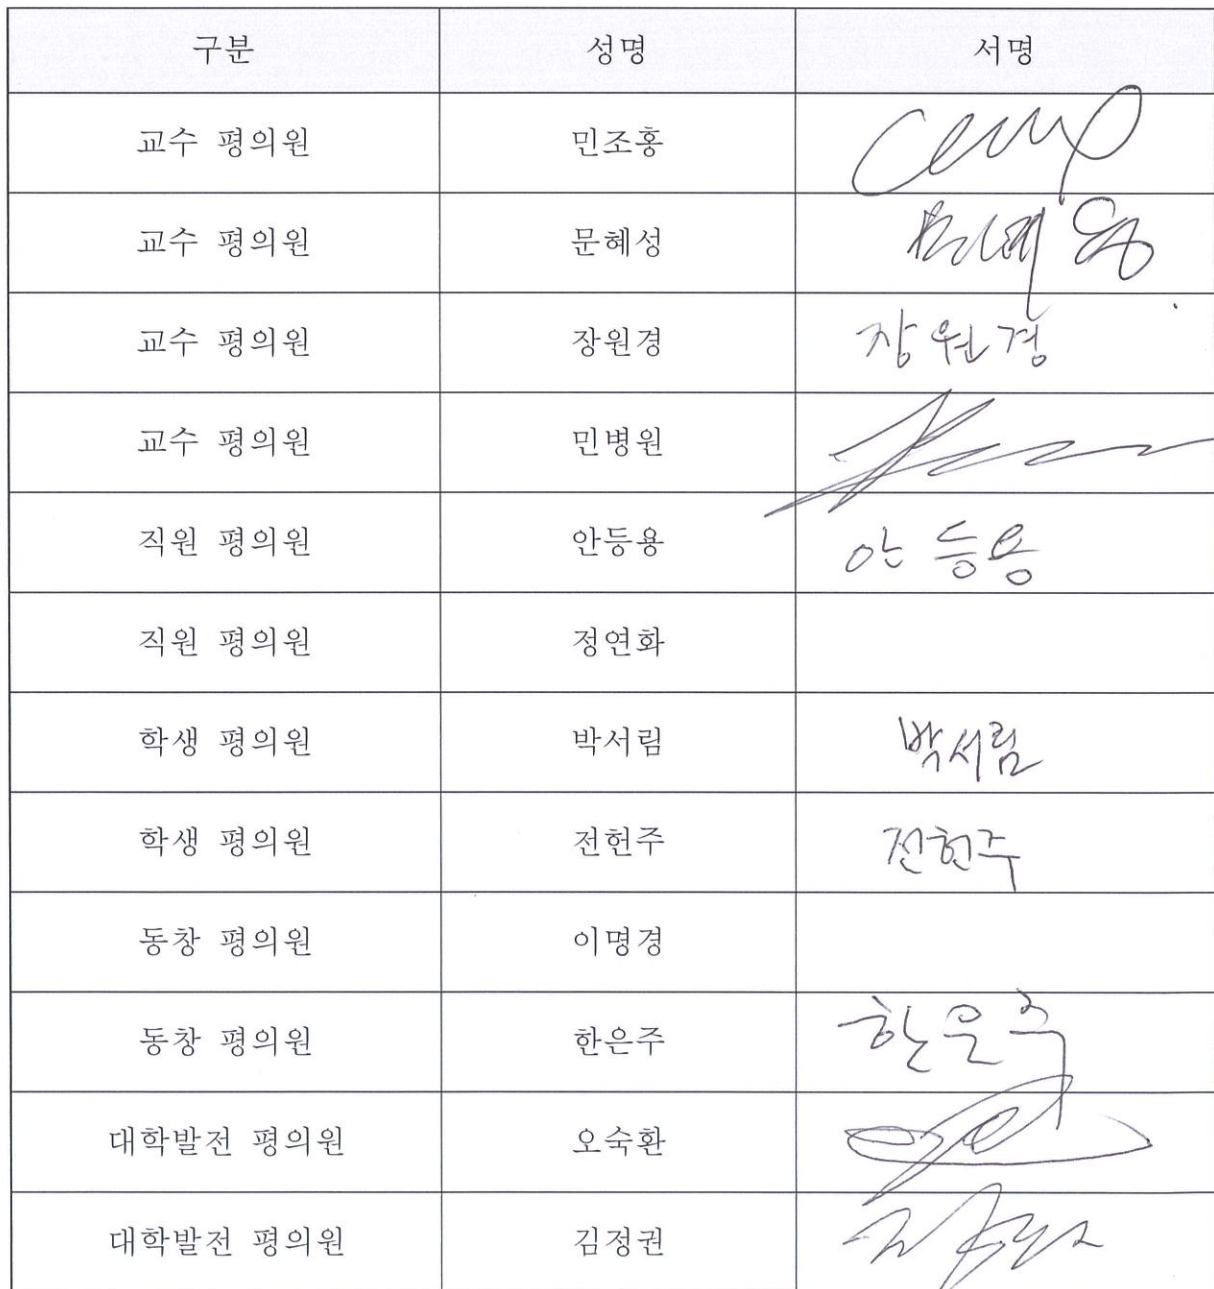 구분 성명 서명
교수 평의원 민조홍
교수 평의원 문혜성
교수 평의원 장원경 장원경
교수 평의원 민병원
직원 평의원 안등용 안등용
직원 평의원 정연화
학생 평의원 박서림 박서림
학생 평의원 전헌주 전헌주
동창 평의원 이명경
동창 평의원 한은주 한은주
대학발전 평의원 오숙환
대학발전 평의원 김정권